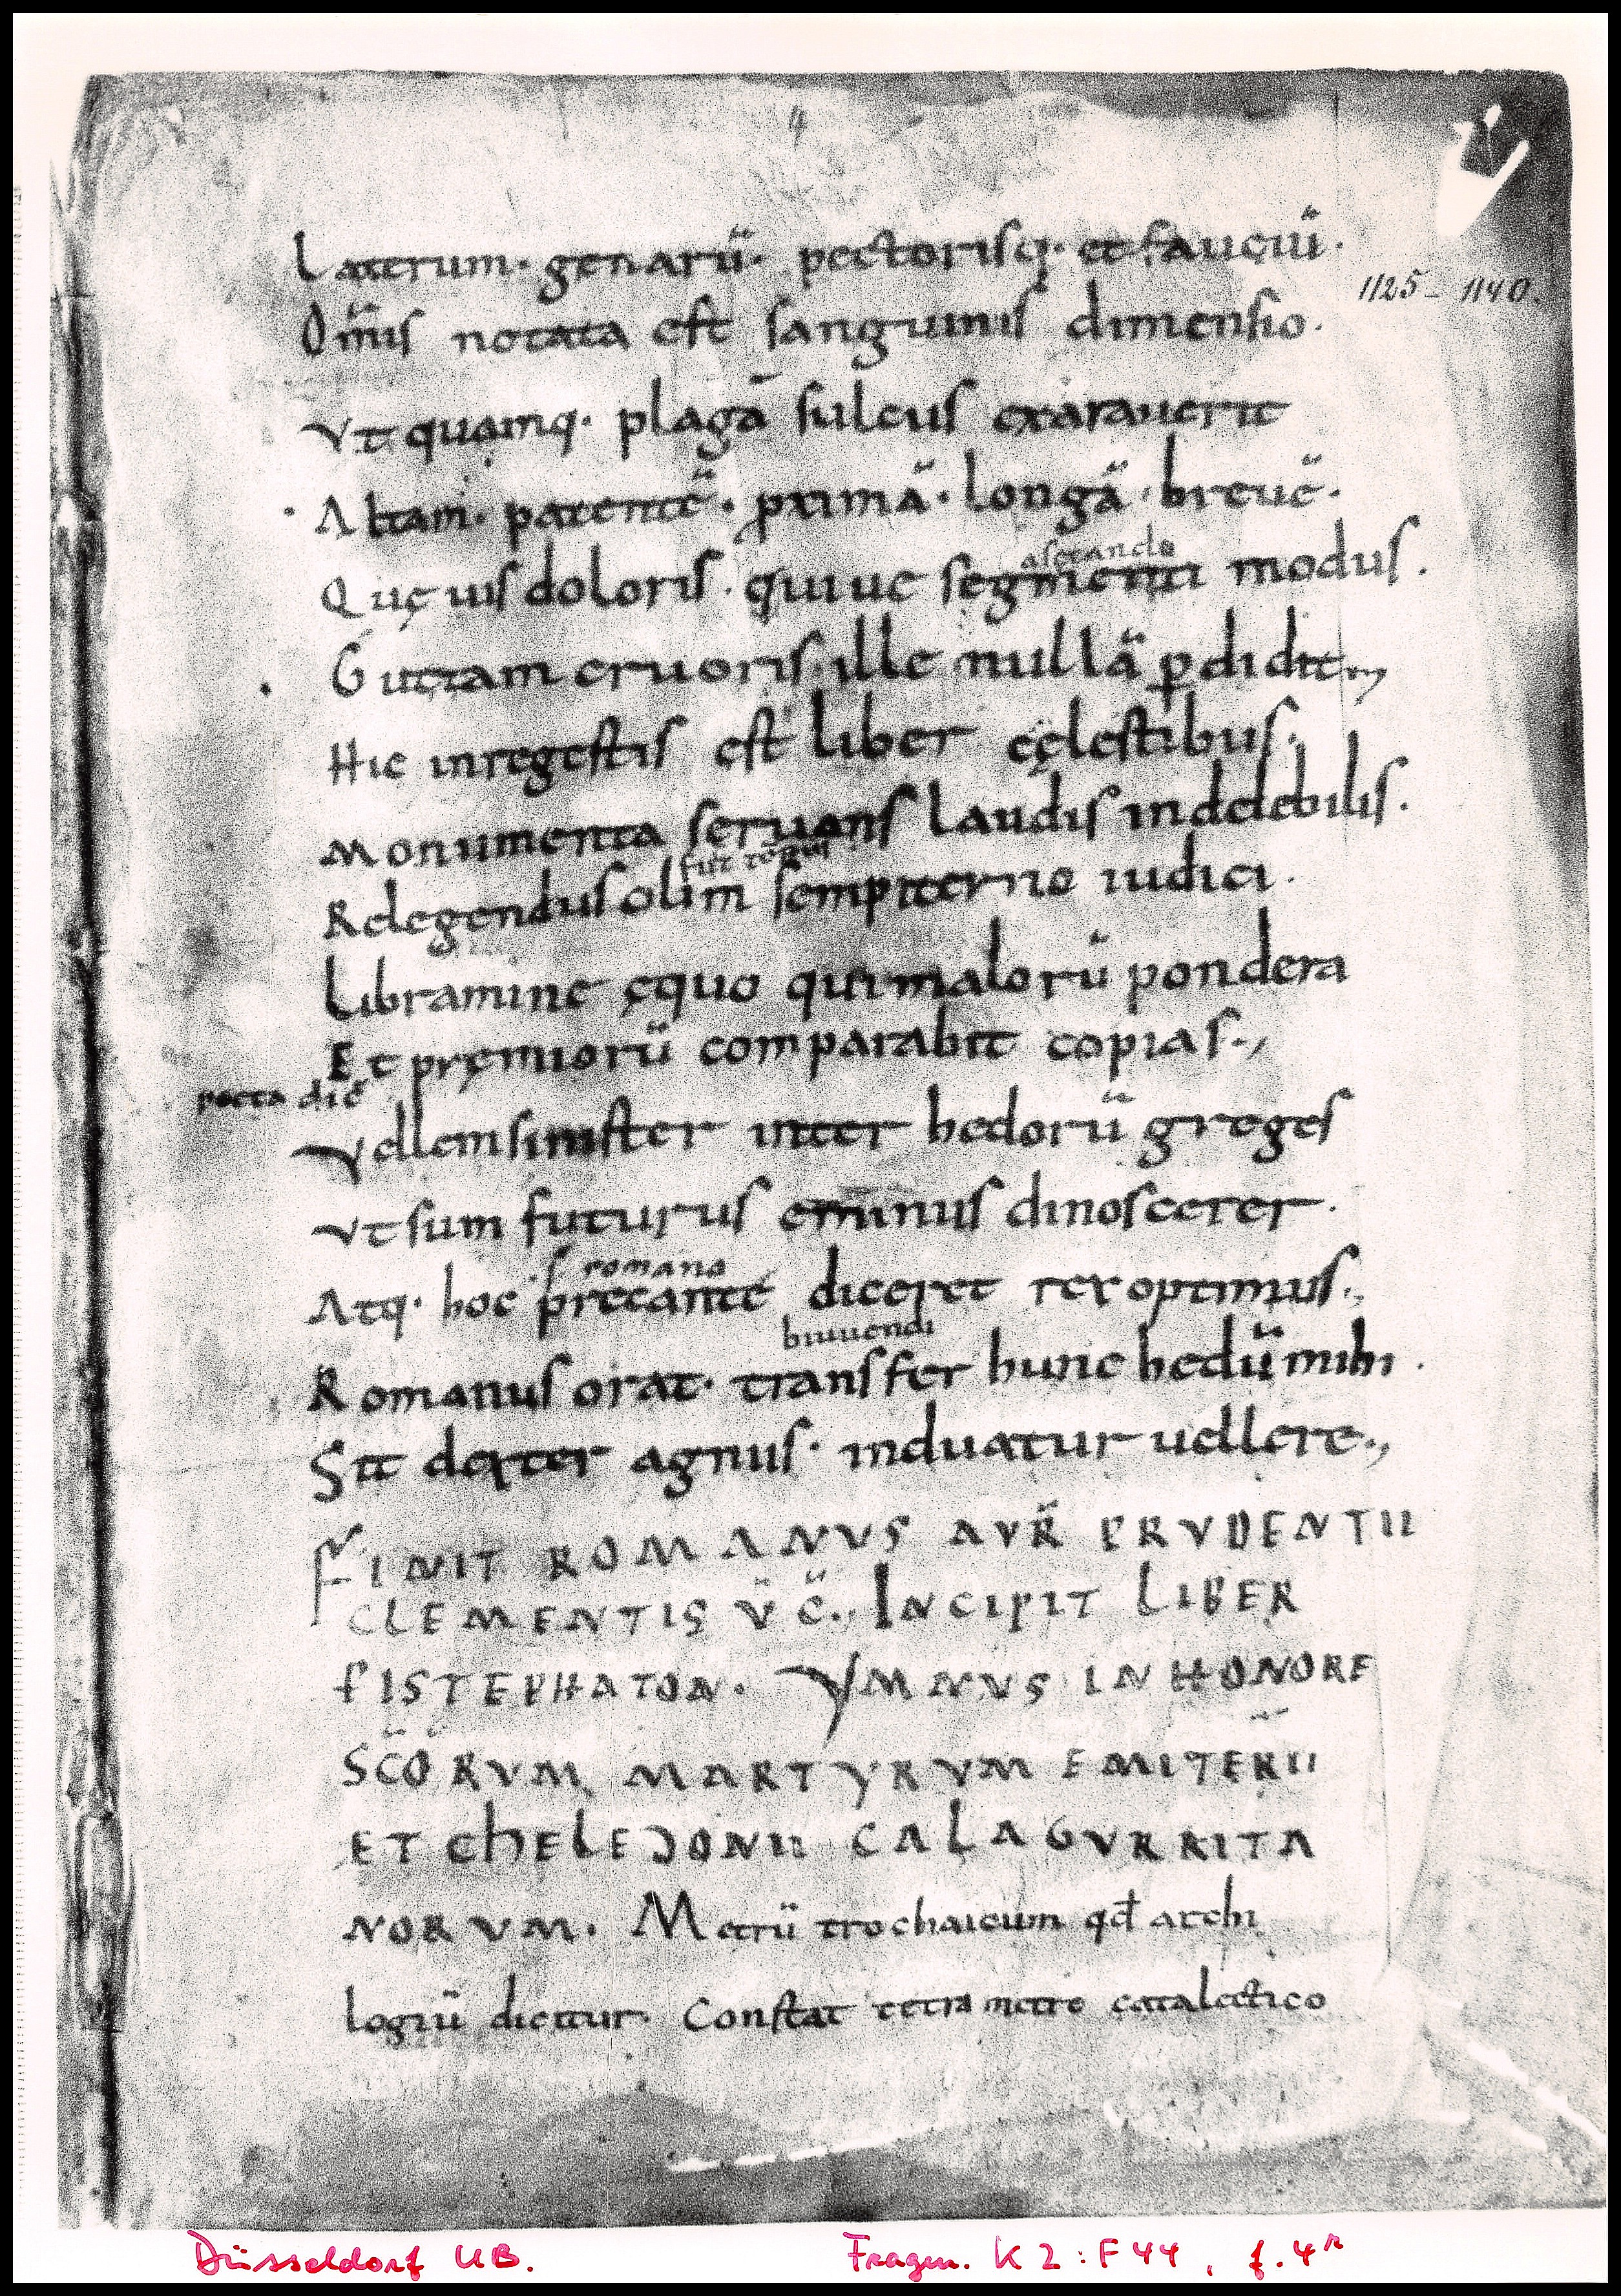 4
Laterum· genarū· pectorisq· et fauciū·
1125–1140.
Om̄is notata est sanguinis dimensio·
Vt quamq· plagā sulcus exarauerit
Altam· patentē· pximā· longā· breuē·
Quę uis doloris· quiue segmenti modus·
Guttam cruoris ille nullā pdidit,
Hic inregestis est liber cęlestibus·
Monumenta seruans laudis indelebilis·
Relegendus olim sempiterno iudici·
Libramine ęquo qui malorū pondera
Et pręmiorū comparabit copias·,
poeta dic̄
Vellem sinister inter hedorū greges
Vt sum futurus eminus dinoscerer·
s· romano
Atq· hoc precante diceret rex optimus·,
Romanus orat· transfer hunc hedū mihi·
Sit dexter agnus· induatur uellere·,
FINIT ROMANVS AVR̄ PRVDENTII
CLEMENTIS V̄ C̄·, INCIPIT LIBER
PISTEPHATON· YMNVS IN HONORE
SC̄ORVM MARTYRVM EMITERII
ET CHELEDONII CALAGVRRITA
NORVM· Metrū trochaicum qd̄ archi
logiū dicitur· Constat tetrametro catalectico
Düsseldorf UB.
Fragm. K2:F44, f.4r